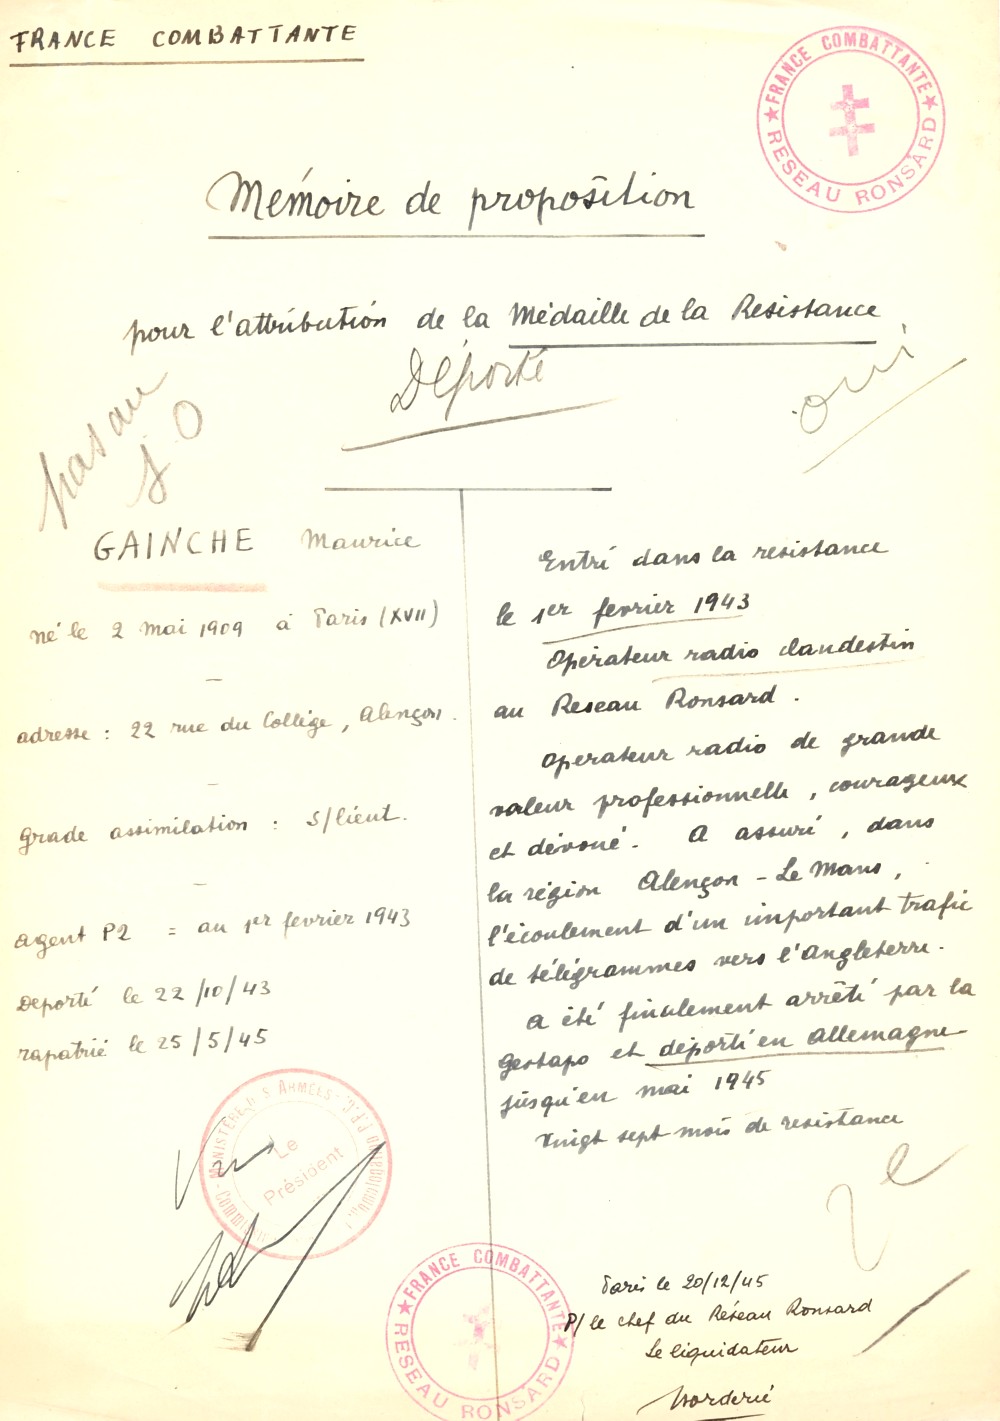 FRANCE COMBATTANTE
★ FRANCE COMBATTANTE ★
RESEAU RONSARD
Mémoire de proposition
pour l'attribution de la Médaille de la Résistance
Déporté
oui
pas au
J O
GAINCHE Maurice
né le 2 mai 1909 à Paris (XVII)
—
adresse : 22 rue du Collège, Alençon.
—
grade assimilation : S/lieut.
—
agent P2 = au 1er fevrier 1943
Deporté le 22/10/43
rapatrié le 25/5/45
Entré dans la resistance
le 1er fevrier 1943
Opérateur radio clandestin
au Reseau Ronsard.
Operateur radio de grande
valeur professionnelle, courageux
et dévoué. A assuré, dans
la région Alençon - Le Mans,
l'écoulement d'un important trafic
de télégrammes vers l'Angleterre.
A été finalement arrêté par la
Gestapo et déporté en Allemagne
jusqu'en mai 1945
Vingt sept mois de resistance
MINISTÈRE DES ARMÉES
Le
Président
Vu
★ FRANCE COMBATTANTE ★
RESEAU RONSARD
Paris le 20/12/45
P/ le chef du Réseau Ronsard
Le liquidateur